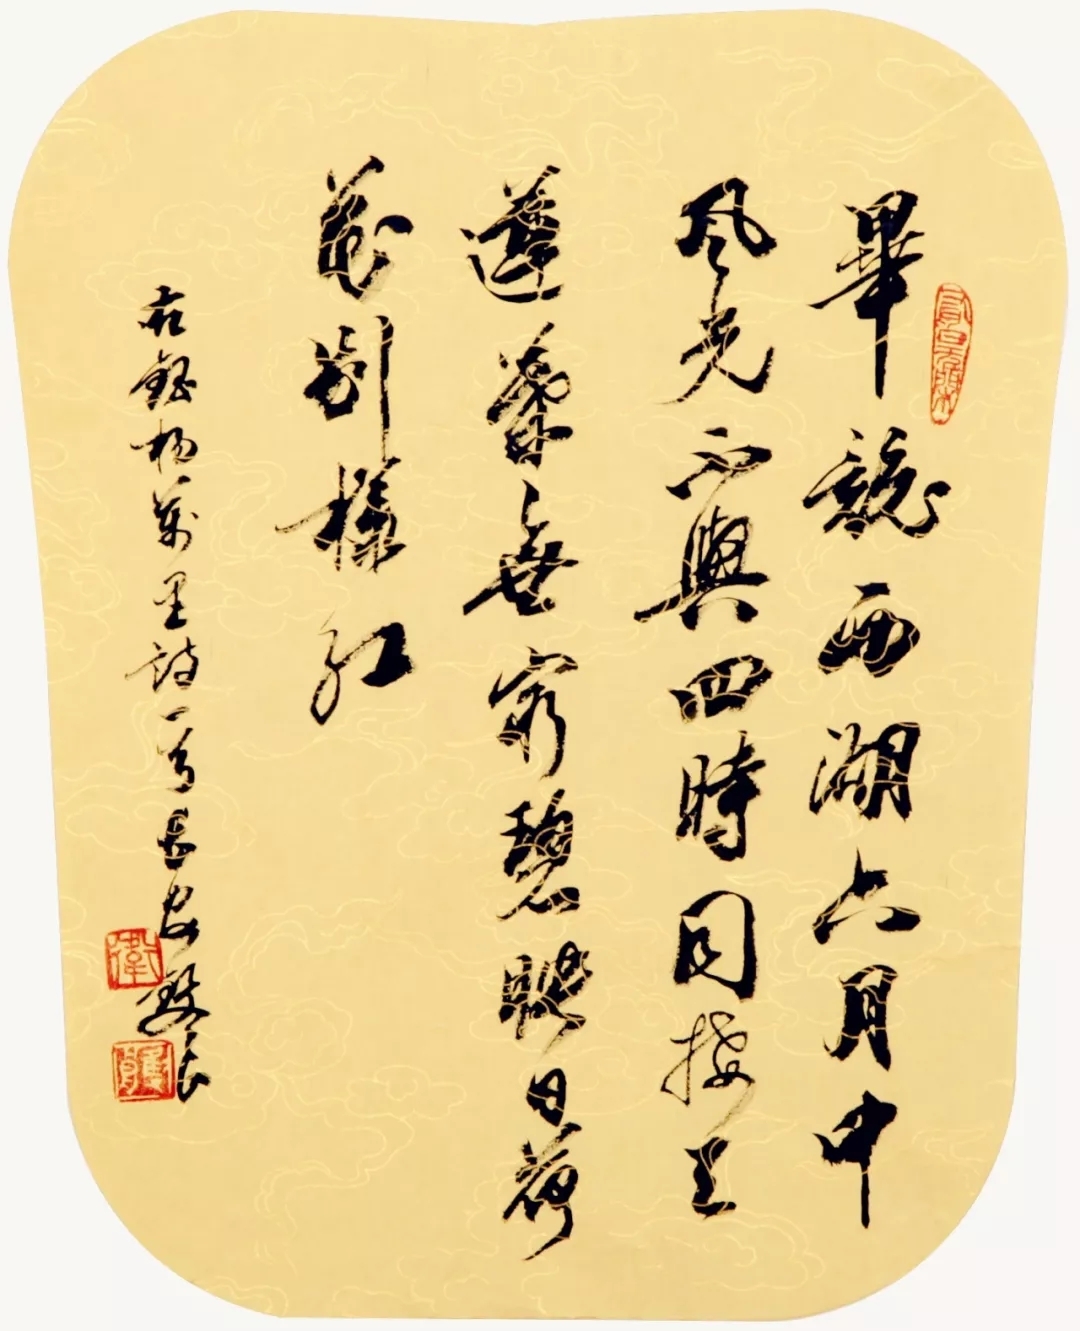 畢競西湖六月中
風光不與四時同接天
蓮葉無窮碧映日荷
花別樣紅
右錄楊萬里詩一首長安